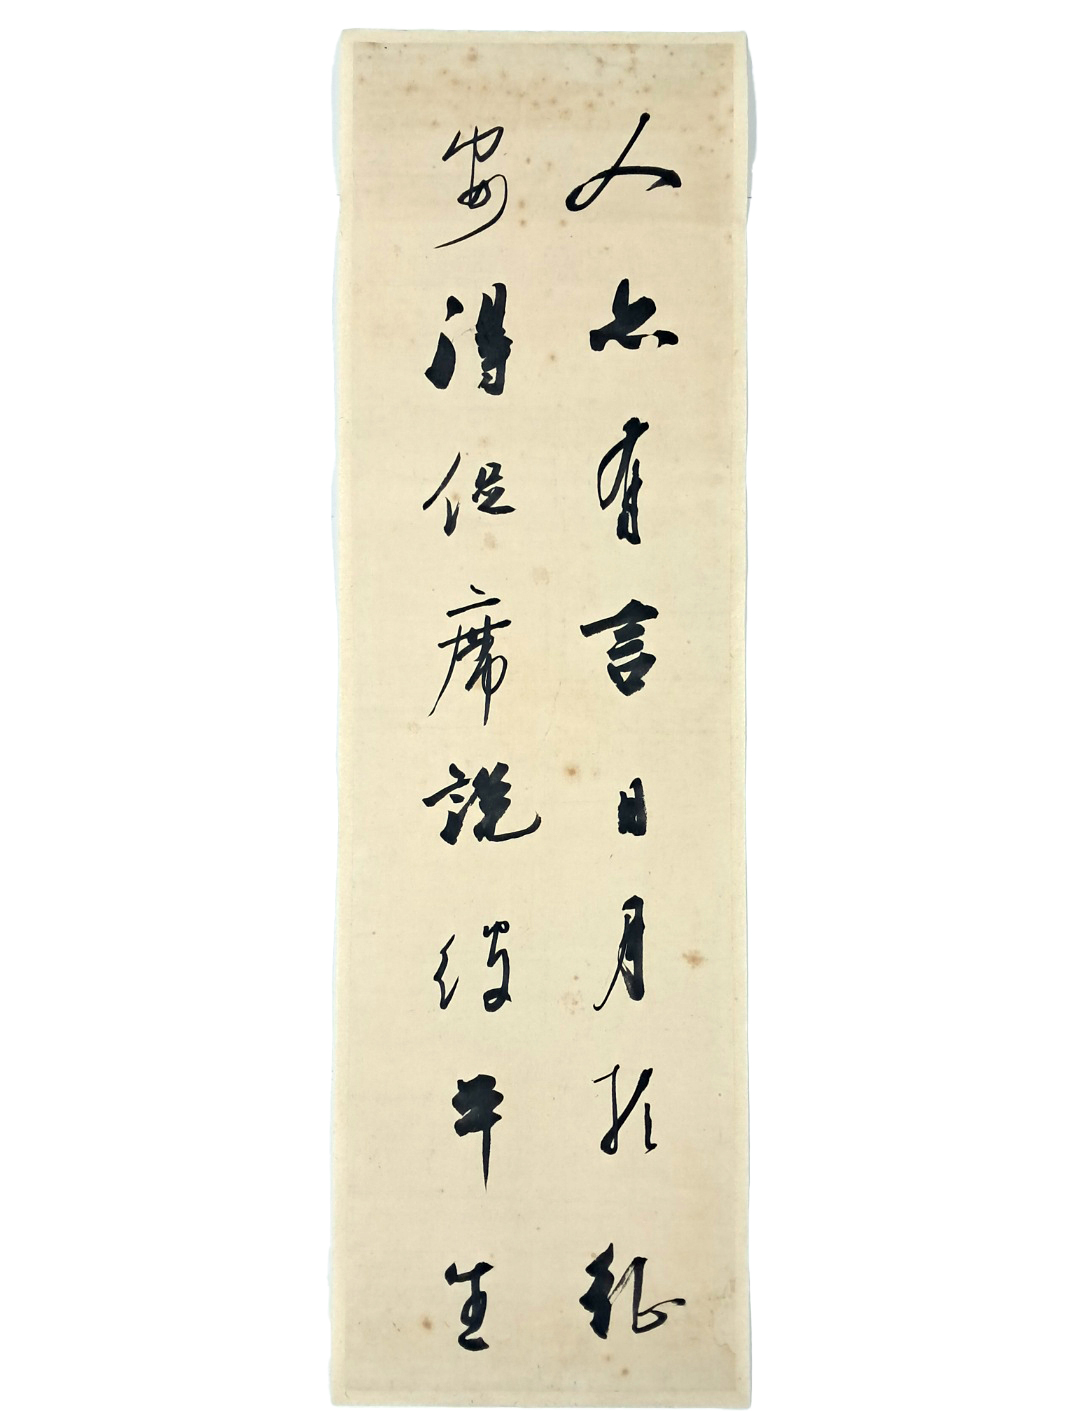 人亦有言日月於征
安得促席說彼平生